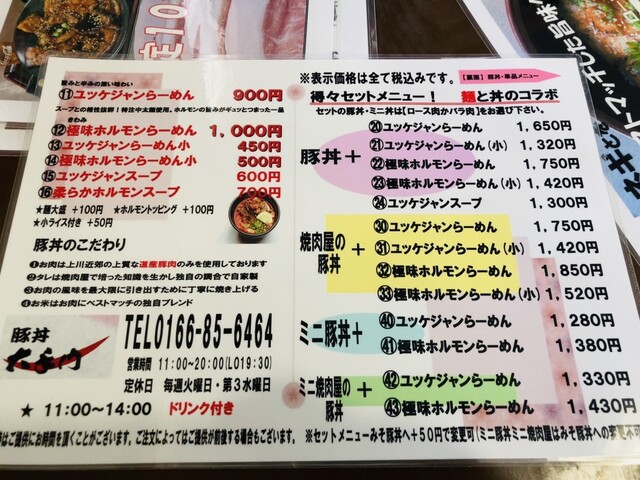 ※表示価格は全て税込みです。
【裏面】豚丼・単品メニュー
旨みと辛みの深い味わい
⑪ユッケジャンらーめん 900円
スープとの相性抜群！特注中太麺使用。ホルモンの旨みがギュッとつまった一品
きわみ
⑫極味ホルモンらーめん 1,000円
⑬ユッケジャンらーめん小 450円
⑭極味ホルモンらーめん小 500円
⑮ユッケジャンスープ 600円
⑯柔らかホルモンスープ 700円
★麺大盛 +100円 ★ホルモントッピング +100円
★小ライス付き +50円
豚丼のこだわり
❶お肉は上川近郊の上質な道産豚肉のみを使用しております
❷タレは焼肉屋で培った知識を生かし独自の調合で自家製
❸お肉の風味を最大限に引き出すために丁寧に焼き上げる
❹お米はお肉にベストマッチの独自ブレンド
豚丼
TEL0166-85-6464
営業時間 11:00~20:00(LO19:30)
定休日 毎週火曜日・第3水曜日
★ 11:00~14:00 ドリンク付き
はご提供にお時間を頂くことがございます。ご注文によってはご提供が前後する場合もございます。
得々セットメニュー！ 麺と丼のコラボ
セットの豚丼・ミニ丼は【ロース肉かバラ肉】をお選び下さい。
豚丼＋
⑳ユッケジャンらーめん 1,650円
㉑ユッケジャンらーめん(小) 1,320円
㉒極味ホルモンらーめん 1,750円
㉓極味ホルモンらーめん(小) 1,420円
㉔ユッケジャンスープ 1,300円
焼肉屋の豚丼＋
㉚ユッケジャンらーめん 1,750円
㉛ユッケジャンらーめん(小) 1,420円
㉜極味ホルモンらーめん 1,850円
㉝極味ホルモンらーめん(小) 1,520円
ミニ豚丼＋
㊵ユッケジャンらーめん 1,280円
㊶極味ホルモンらーめん 1,380円
ミニ焼肉屋の豚丼＋
㊷ユッケジャンらーめん 1,330円
㊸極味ホルモンらーめん 1,430円
※セットメニューみそ豚丼へ+50円で変更可(ミニ豚丼ミニ焼肉屋はみそ豚丼への変更不可
トマッチした旨味